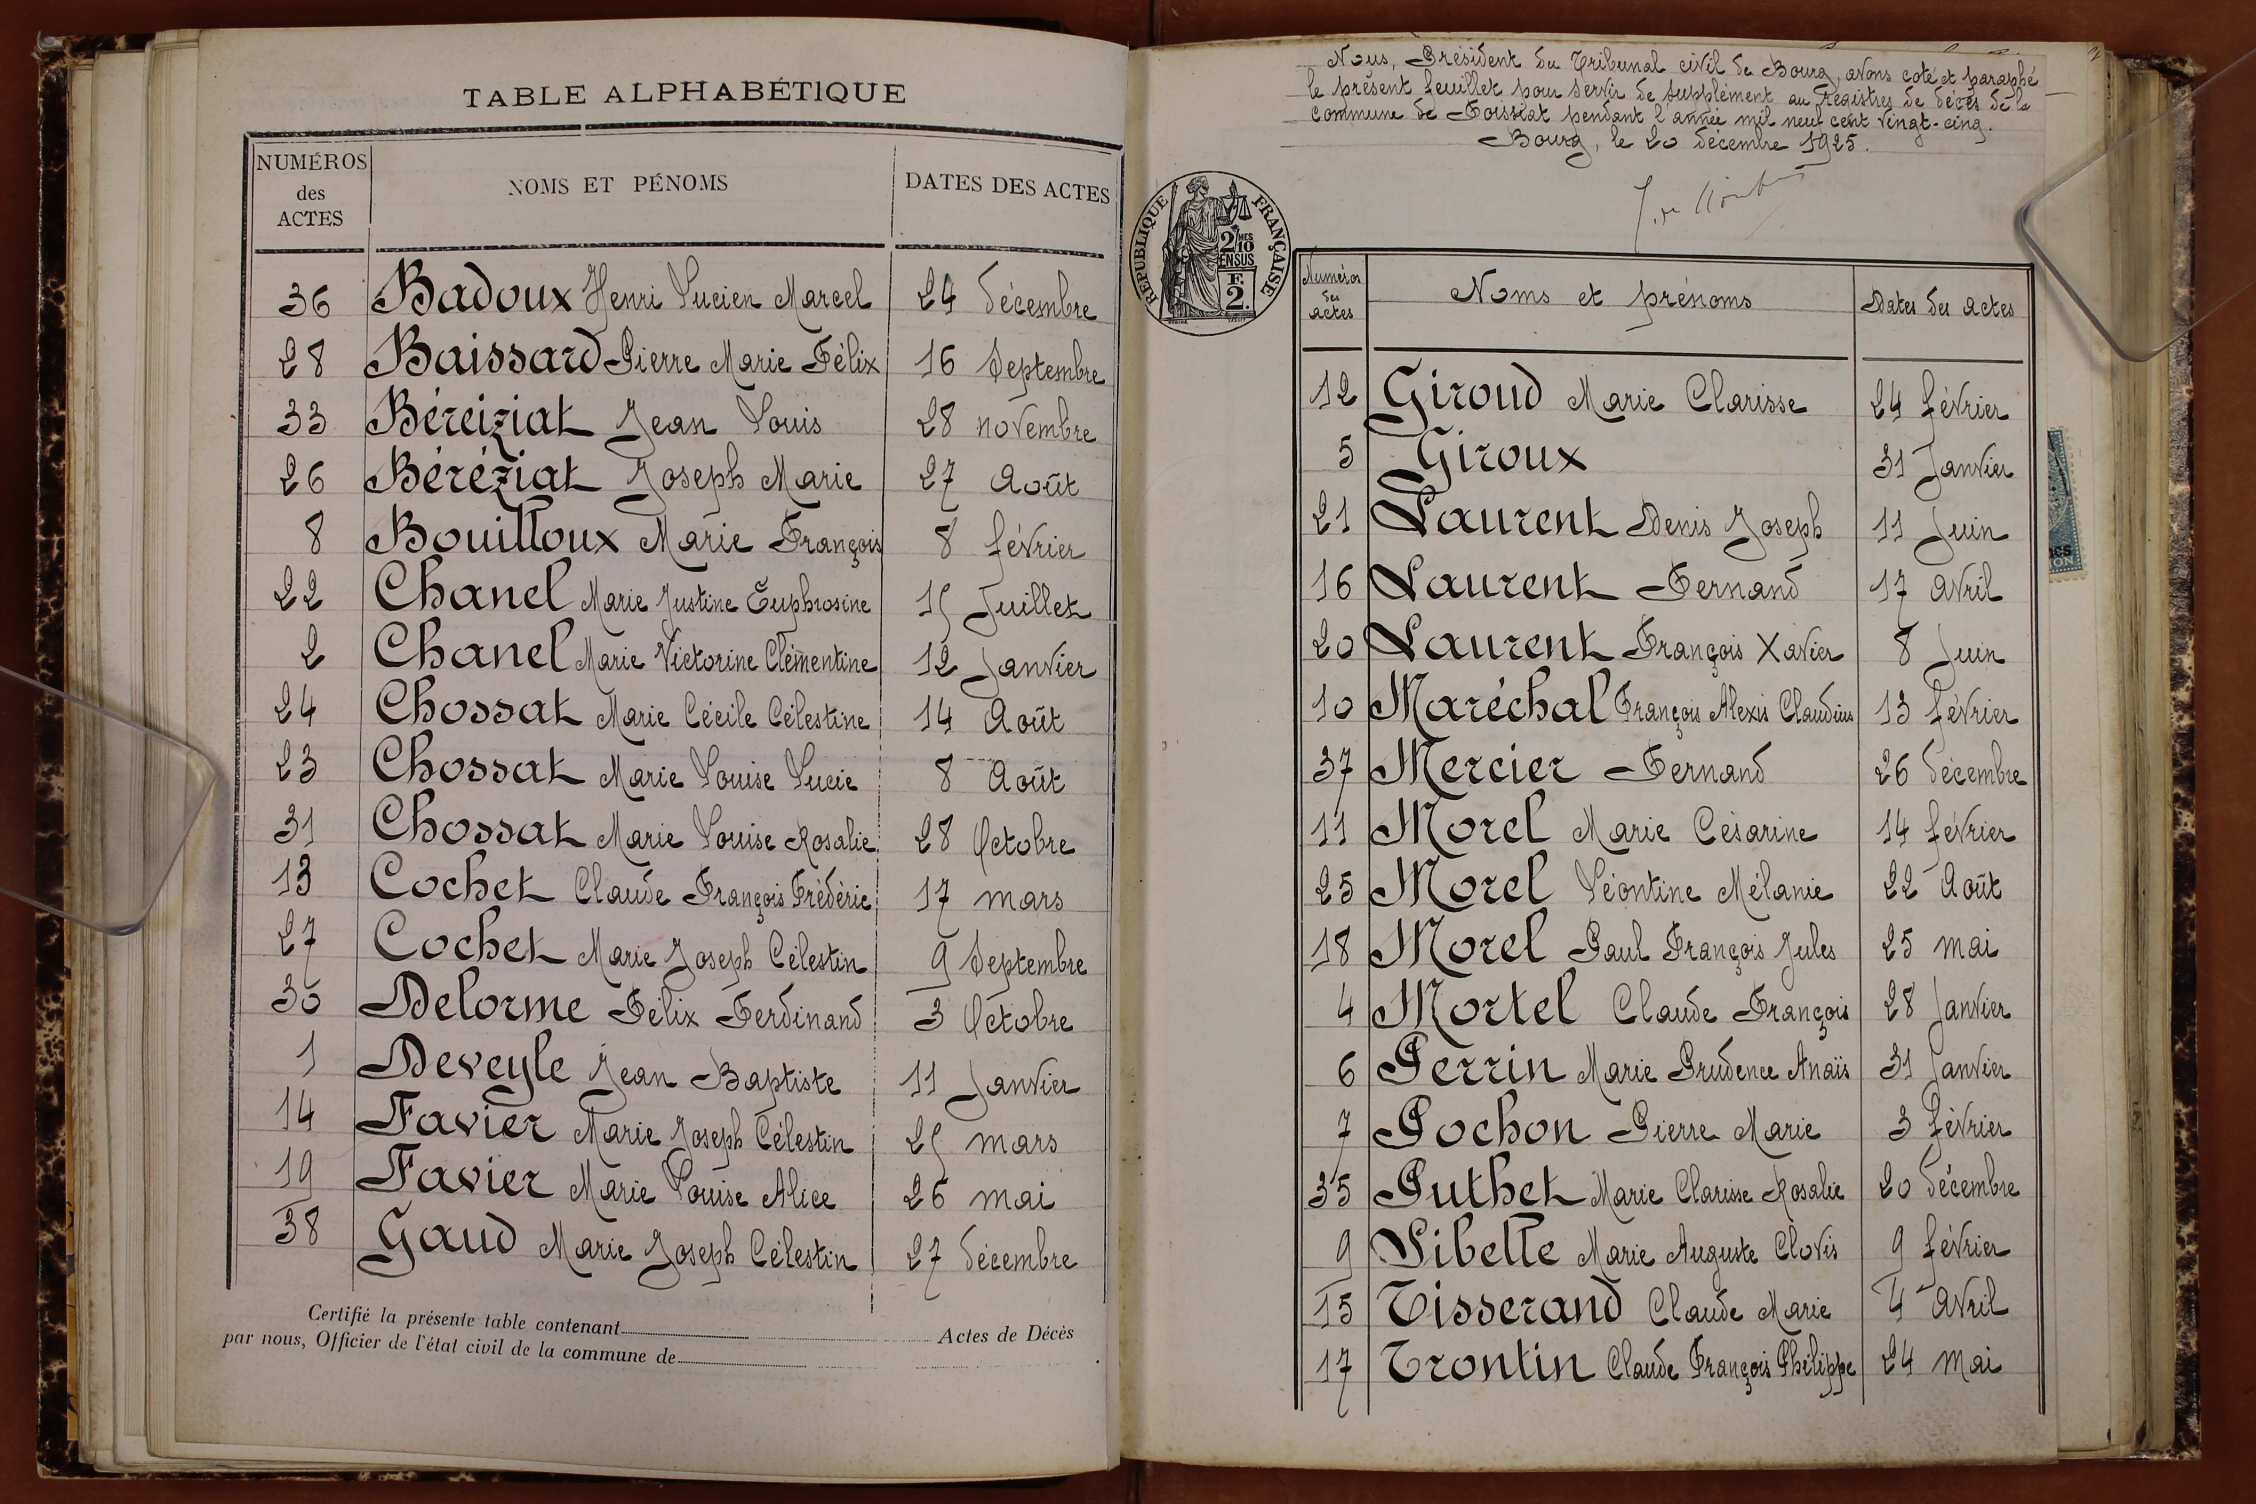 TABLE ALPHABÉTIQUE
NUMÉROS des ACTES
NOMS ET PÉNOMS
DATES DES ACTES
36 Badoux Henri Lucien Marcel 24 décembre
28 Baissard Pierre Marie Félix 16 Septembre
33 Béreiziat Jean Louis 28 novembre
26 Béréziat Joseph Marie 27 Août
8 Bouilloux Marie François 8 février
22 Chanel Marie Justine Euphrosine 15 Juillet
2 Chanel Marie Victorine Clémentine 12 Janvier
24 Chossat Marie Cécile Célestine 14 Août
23 Chossat Marie Louise Lucie 8 Août
31 Chossat Marie Louise Rosalie 28 Octobre
13 Cochet Claude François Frédéric 17 mars
27 Cochet Marie Joseph Célestin 9 Septembre
30 Delorme Félix Ferdinand 3 Octobre
1 Deveyle Jean Baptiste 11 Janvier
14 Favier Marie Joseph Célestin 25 mars
19 Favier Marie Louise Alice 26 mai
38 Gaud Marie Joseph Célestin 27 décembre
Certifié la présente table contenant Actes de Décès
par nous, Officier de l'état civil de la commune de
Nous, Président du Tribunal civil de Bourg, avons coté et paraphé
le présent feuillet pour servir de supplément au Registres de décès de la
commune de Foissiat pendant l'année mil neuf cent vingt-cinq.
Bourg, le 20 décembre 1925.
RÉPUBLIQUE FRANÇAISE
2 MES 10
EN SUS
F.
2.
Numéros des actes
Noms et prénoms
Dates des actes
12 Giroud Marie Clarisse 24 février
5 Giroux 31 Janvier
21 Laurent Denis Joseph 11 Juin
16 Laurent Fernand 17 avril
20 Laurent François Xavier 8 Juin
10 Maréchal François Alexis Claudius 13 février
37 Mercier Fernand 26 décembre
11 Morel Marie Césarine 14 février
25 Morel Léontine Mélanie 22 Août
18 Morel Paul François Jules 25 mai
4 Mortel Claude François 28 Janvier
6 Perrin Marie Prudence Anaïs 31 Janvier
7 Pochon Pierre Marie 3 février
35 Puthet Marie Clarisse Rosalie 20 décembre
9 Sibelle Marie Auguste Clovis 9 février
15 Tisserand Claude Marie 4 avril
17 Trontin Claude François Philippe 24 mai